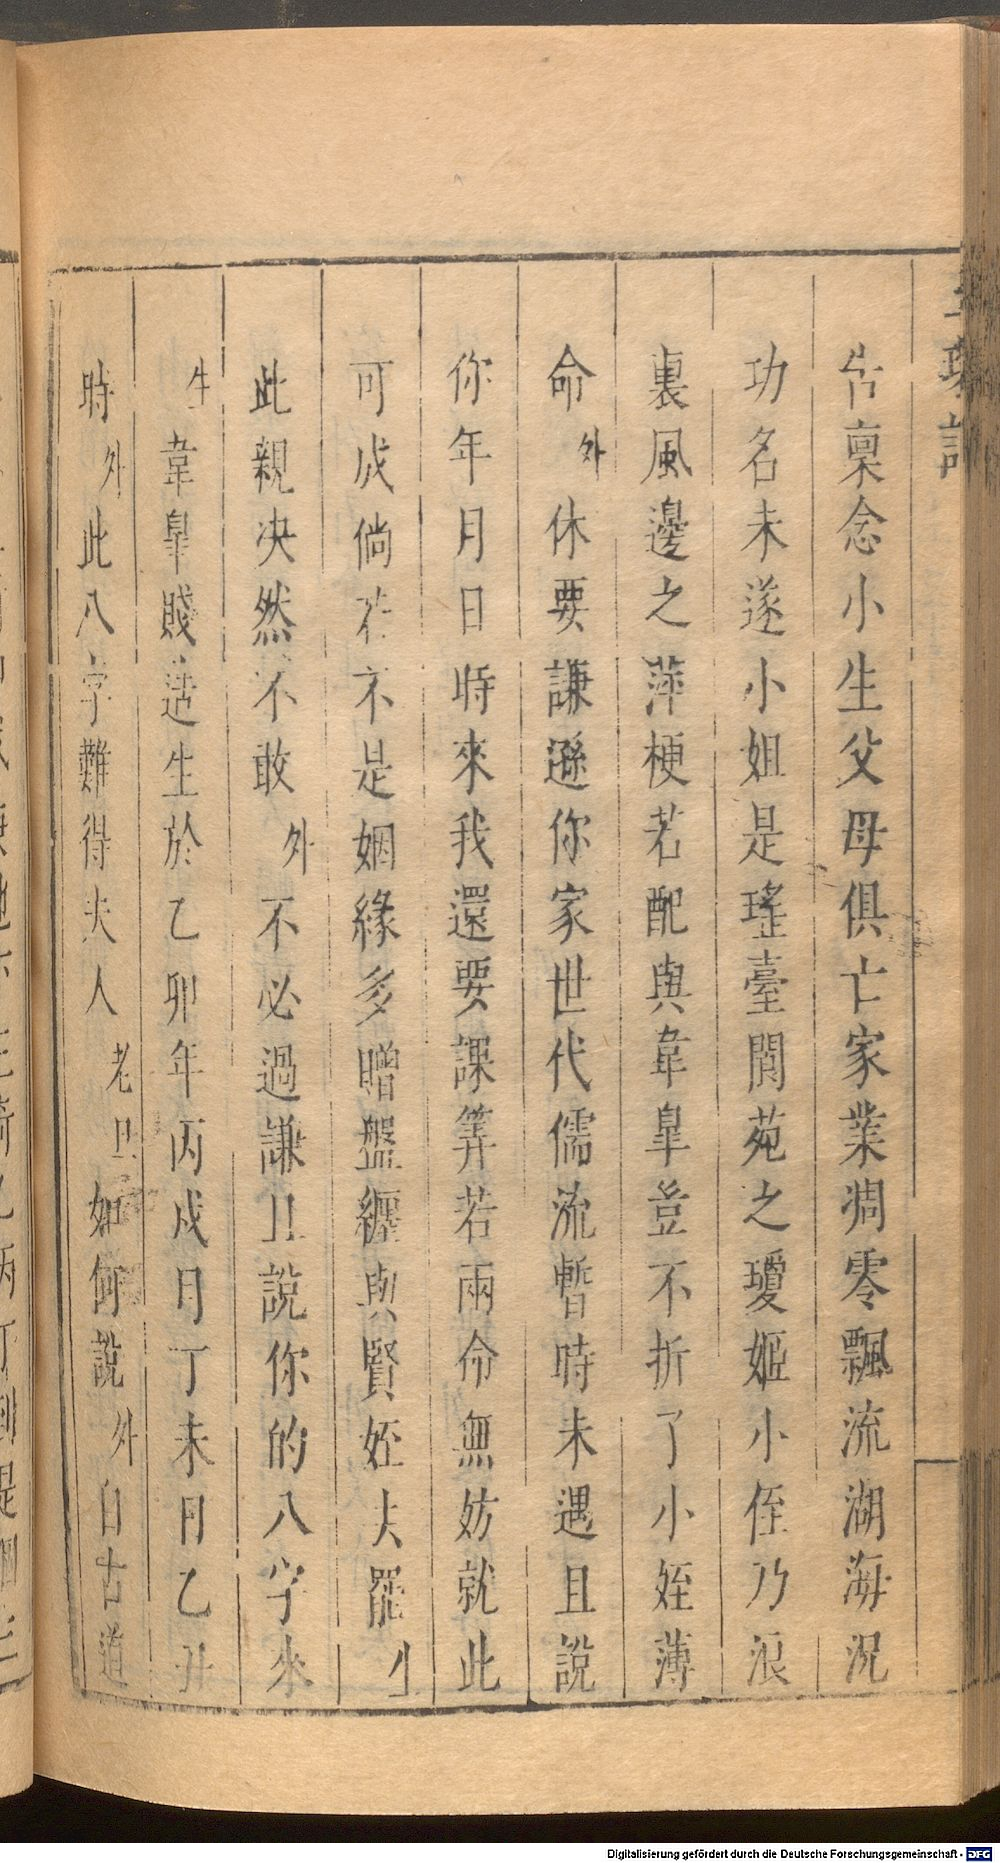 玉環記
告禀念小生父母俱亡家業凋零飄流湖海况
功名未遂小姐是瑤臺閬苑之瓊姬小侄乃浪
裏風邊之萍梗若配與韋臯豈不折了小姪薄
命外休要謙遜你家世代儒流暫時未遇且說
你年月日時來我還要課筭若兩命無妨就此
可成倘若不是姻緣多贈盤纏與賢姪去罷生
此親决然不敢外不必過謙且說你的八字來
生韋臯賤造生於乙卯年丙戌月丁未日乙丑
時外此八字難得夫人老旦如何說外自古道
Digitalisierung gefördert durch die Deutsche Forschungsgemeinschaft - DFG